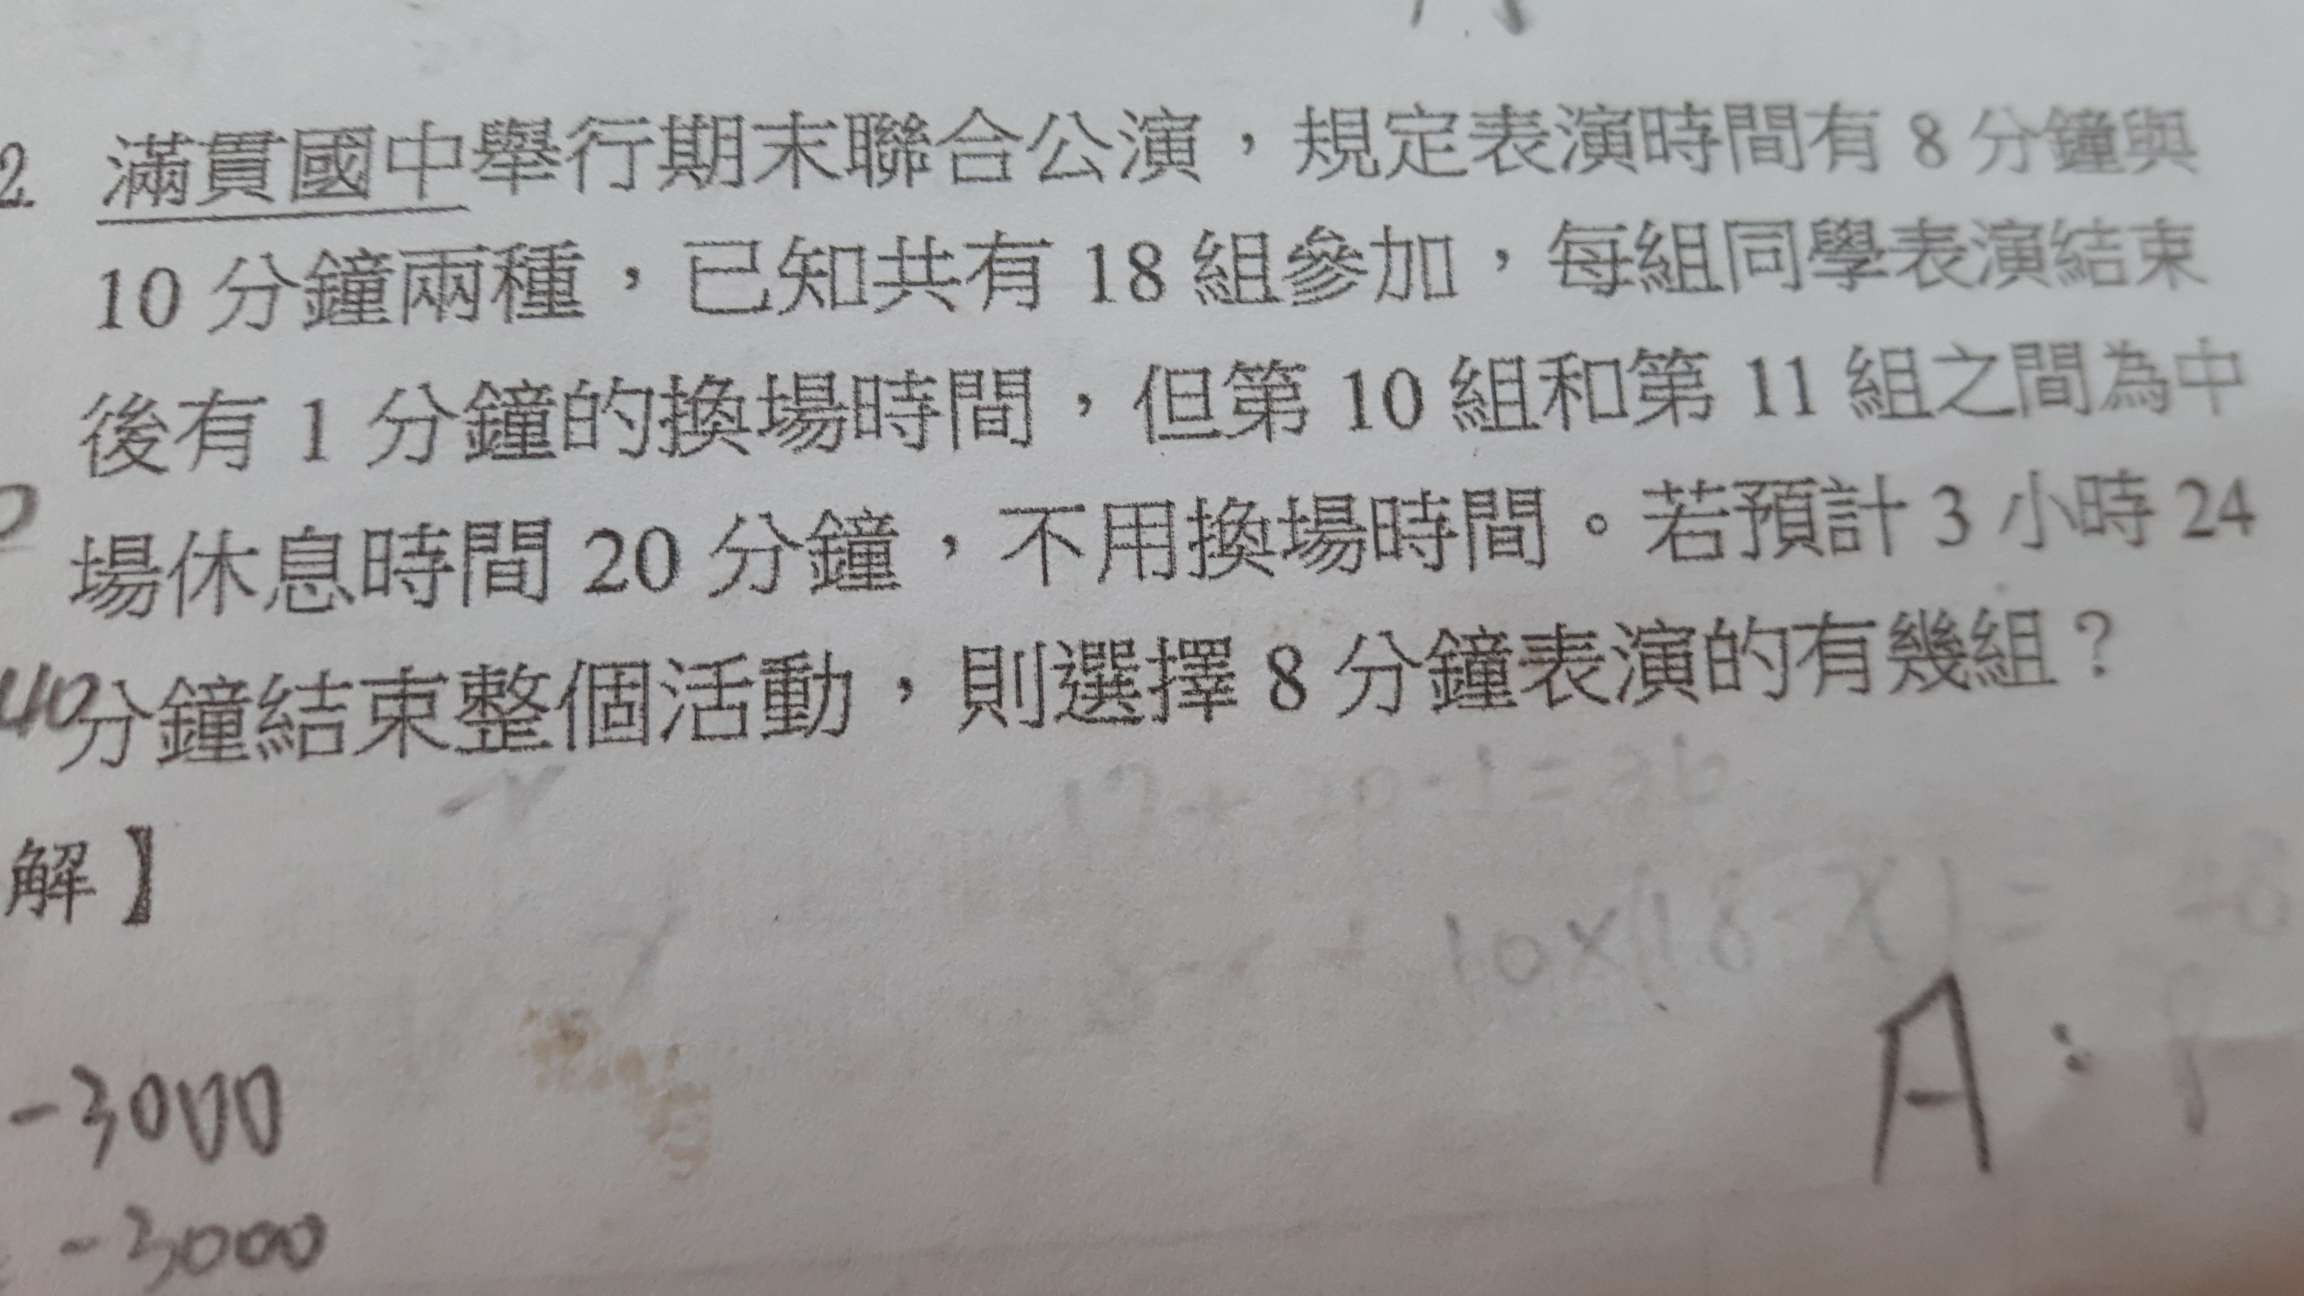 2. 滿貫國中舉行期末聯合公演，規定表演時間有 8 分鐘與
10 分鐘兩種，已知共有 18 組參加，每組同學表演結束
後有 1 分鐘的換場時間，但第 10 組和第 11 組之間為中
場休息時間 20 分鐘，不用換場時間。若預計 3 小時 24
40
分鐘結束整個活動，則選擇 8 分鐘表演的有幾組？
17+20-1=36
解】
10×(18-X)=
A：
-3000
-3000